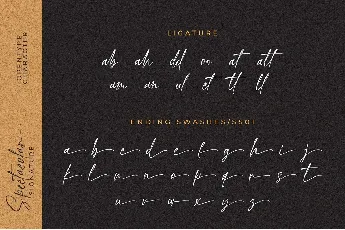 OPENTYPE
CHARACTER
Spectacular
SIGNATURE
LIGATURE
ab ah dd oo at att
am an ul et tl ll
ENDING SWASHES/SS01
a b c d e f g h i j
k l m n o p q r s t
u v w x y z